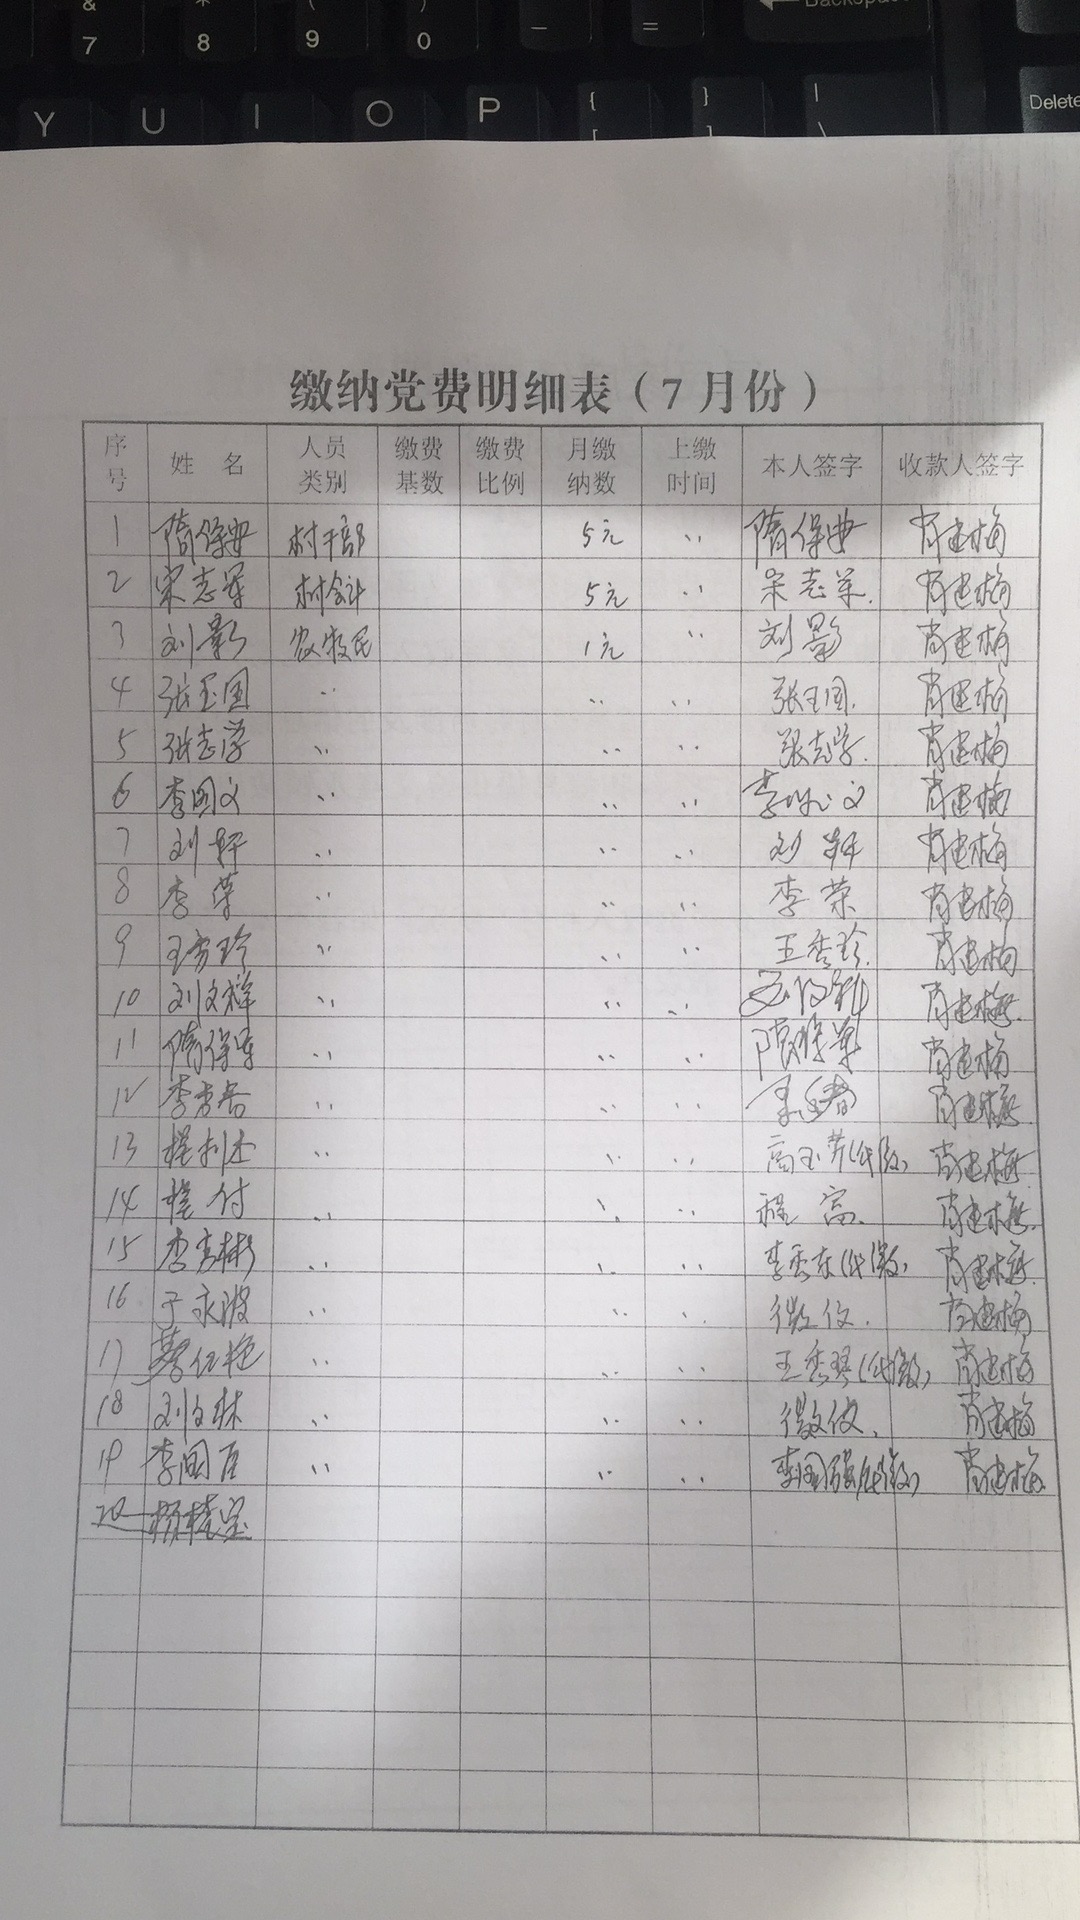 & 7 * 8 ( 9 ) 0 _ - = Backspace
Y U I O P { [ } ] | \ Delete
缴纳党费明细表（7月份）
序号 姓名 人员类别 缴费基数 缴费比例 月缴纳数 上缴时间 本人签字 收款人签字
1 隋保典 村干部 5元 〃 隋保典 肖建梅
2 宋志军 村会计 5元 〃 宋志军. 肖建梅
3 刘影 农牧民 1元 〃 刘影 肖建梅
4 张玉国 〃 〃 〃 张玉国. 肖建梅
5 张志学 〃 〃 〃 张志学. 肖建梅
6 李国文 〃 〃 〃 李 文 肖建梅
7 刘轩 〃 〃 〃 刘轩 肖建梅
8 李荣 〃 〃 〃 李荣 肖建梅
9 王秀珍 〃 〃 〃 王秀珍. 肖建梅
10 刘文祥 〃 〃 〃 肖建梅.
11 隋保军 〃 〃 〃 隋保军 肖建梅
12 李秀春 〃 〃 〃 李秀春 肖建梅.
13 程利 〃 〃 〃 高玉芹(代缴) 肖建梅
14 程付 〃 〃 〃 程富. 肖建梅.
15 李秀彬 〃 〃 〃 李秀东(代缴) 肖建梅.
16 于永波 〃 〃 〃 微信. 肖建梅
17 红艳 〃 〃 〃 王秀琴(代缴) 肖建梅
18 刘文林 〃 〃 〃 微信. 肖建梅
19 李国 〃 〃 〃 李国 (代缴) 肖建梅.
20 杨桂宝